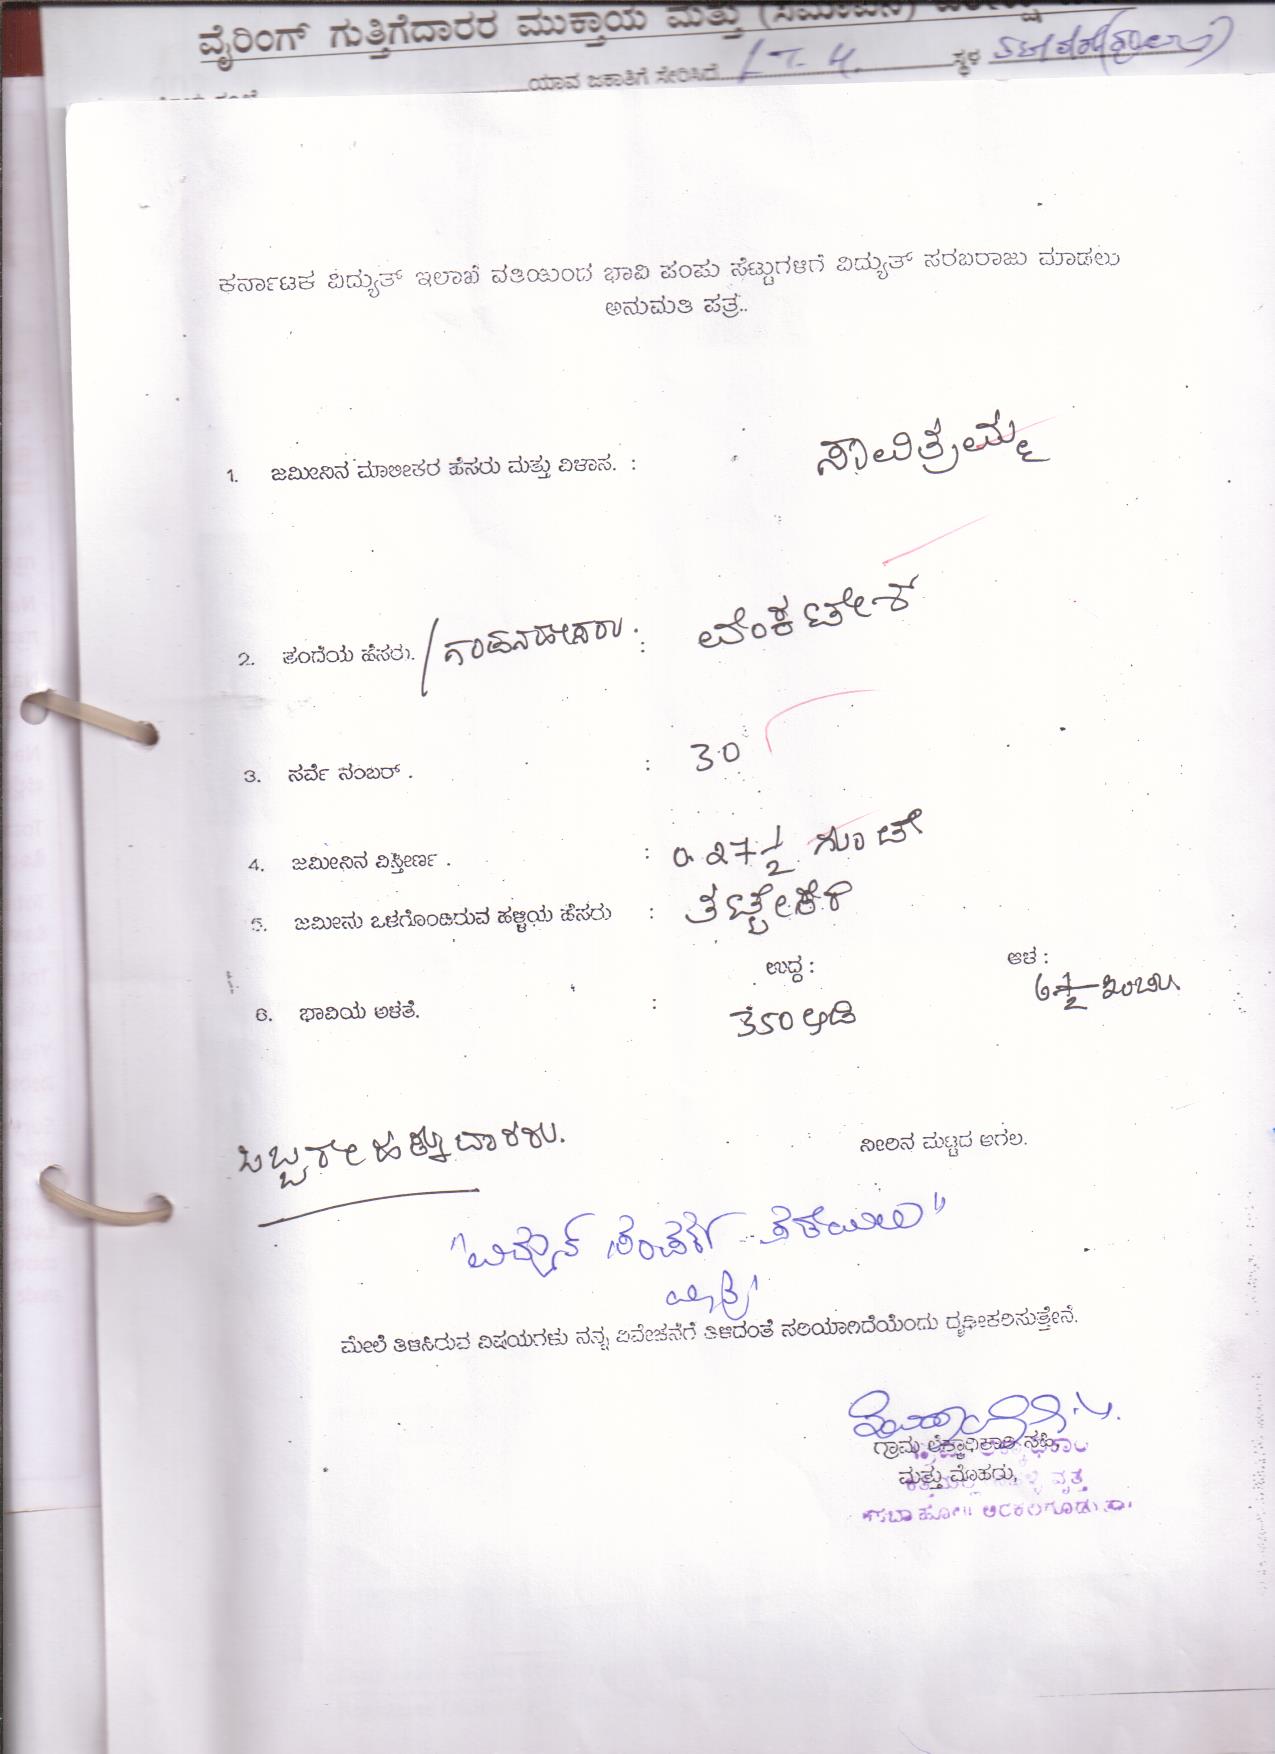 ವೈರಿಂಗ್ ಗುತ್ತಿಗೆದಾರರ ಮುಕ್ತಾಯ ಮತ್ತು
ಯಾವ ಜಕಾತಿಗೆ ಸೇರಿಸಿದೆ LT-4. ಸ್ಥಳ
ಕರ್ನಾಟಕ ವಿದ್ಯುತ್ ಇಲಾಖೆ ವತಿಯಿಂದ ಭಾವಿ ಪಂಪು ಸೆಟ್ಟುಗಳಿಗೆ ವಿದ್ಯುತ್ ಸರಬರಾಜು ಮಾಡಲು
ಅನುಮತಿ ಪತ್ರ..
1. ಜಮೀನಿನ ಮಾಲೀಕರ ಹೆಸರು ಮತ್ತು ವಿಳಾಸ. : ಸಾವಿತ್ರಮ್ಮ
2. ತಂದೆಯ ಹೆಸರು. / ಗಂಡನಹೆಸರು. : ವೆಂಕಟೇಶ್
3. ಸರ್ವೆ ನಂಬರ್ . : 30
4. ಜಮೀನಿನ ವಿಸ್ತೀರ್ಣ . : 0.27 1/2 ಗುಂಟೆ
5. ಜಮೀನು ಒಳಗೊಂಡಿರುವ ಹಳ್ಳಿಯ ಹೆಸರು : ತಟ್ಟೇಕೆರೆ
ಉದ್ದ : ಆಳ :
6. ಭಾವಿಯ ಅಳತೆ. : 350 ಅಡಿ 6 1/2 ಇಂಚು
ಒಬ್ಬರೇ ಹಕ್ಕುದಾರರು.
ನೀರಿನ ಮಟ್ಟದ ಅಗಲ.
ಮೇಲೆ ತಿಳಿಸಿರುವ ವಿಷಯಗಳು ನನ್ನ ವಿವೇಚನೆಗೆ ತಿಳಿದಂತೆ ಸರಿಯಾಗಿದೆಯೆಂದು ದೃಢೀಕರಿಸುತ್ತೇನೆ.
ಗ್ರಾಮ ಲೆಕ್ಕಾಧಿಕಾರಿ ಸಹಿ
ಮತ್ತು ಮೊಹರು,
ವೃತ್ತ
ಕಸಬಾ ಹೋ|| ಅರಕಲಗೂಡು ತಾ||